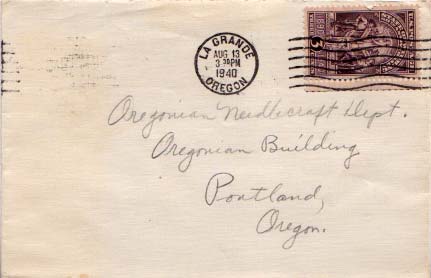 LA GRANDE
AUG 13
3 30PM
1940
OREGON
Oregonian Needlecraft Dept.
Oregonian Building
Portland,
Oregon.